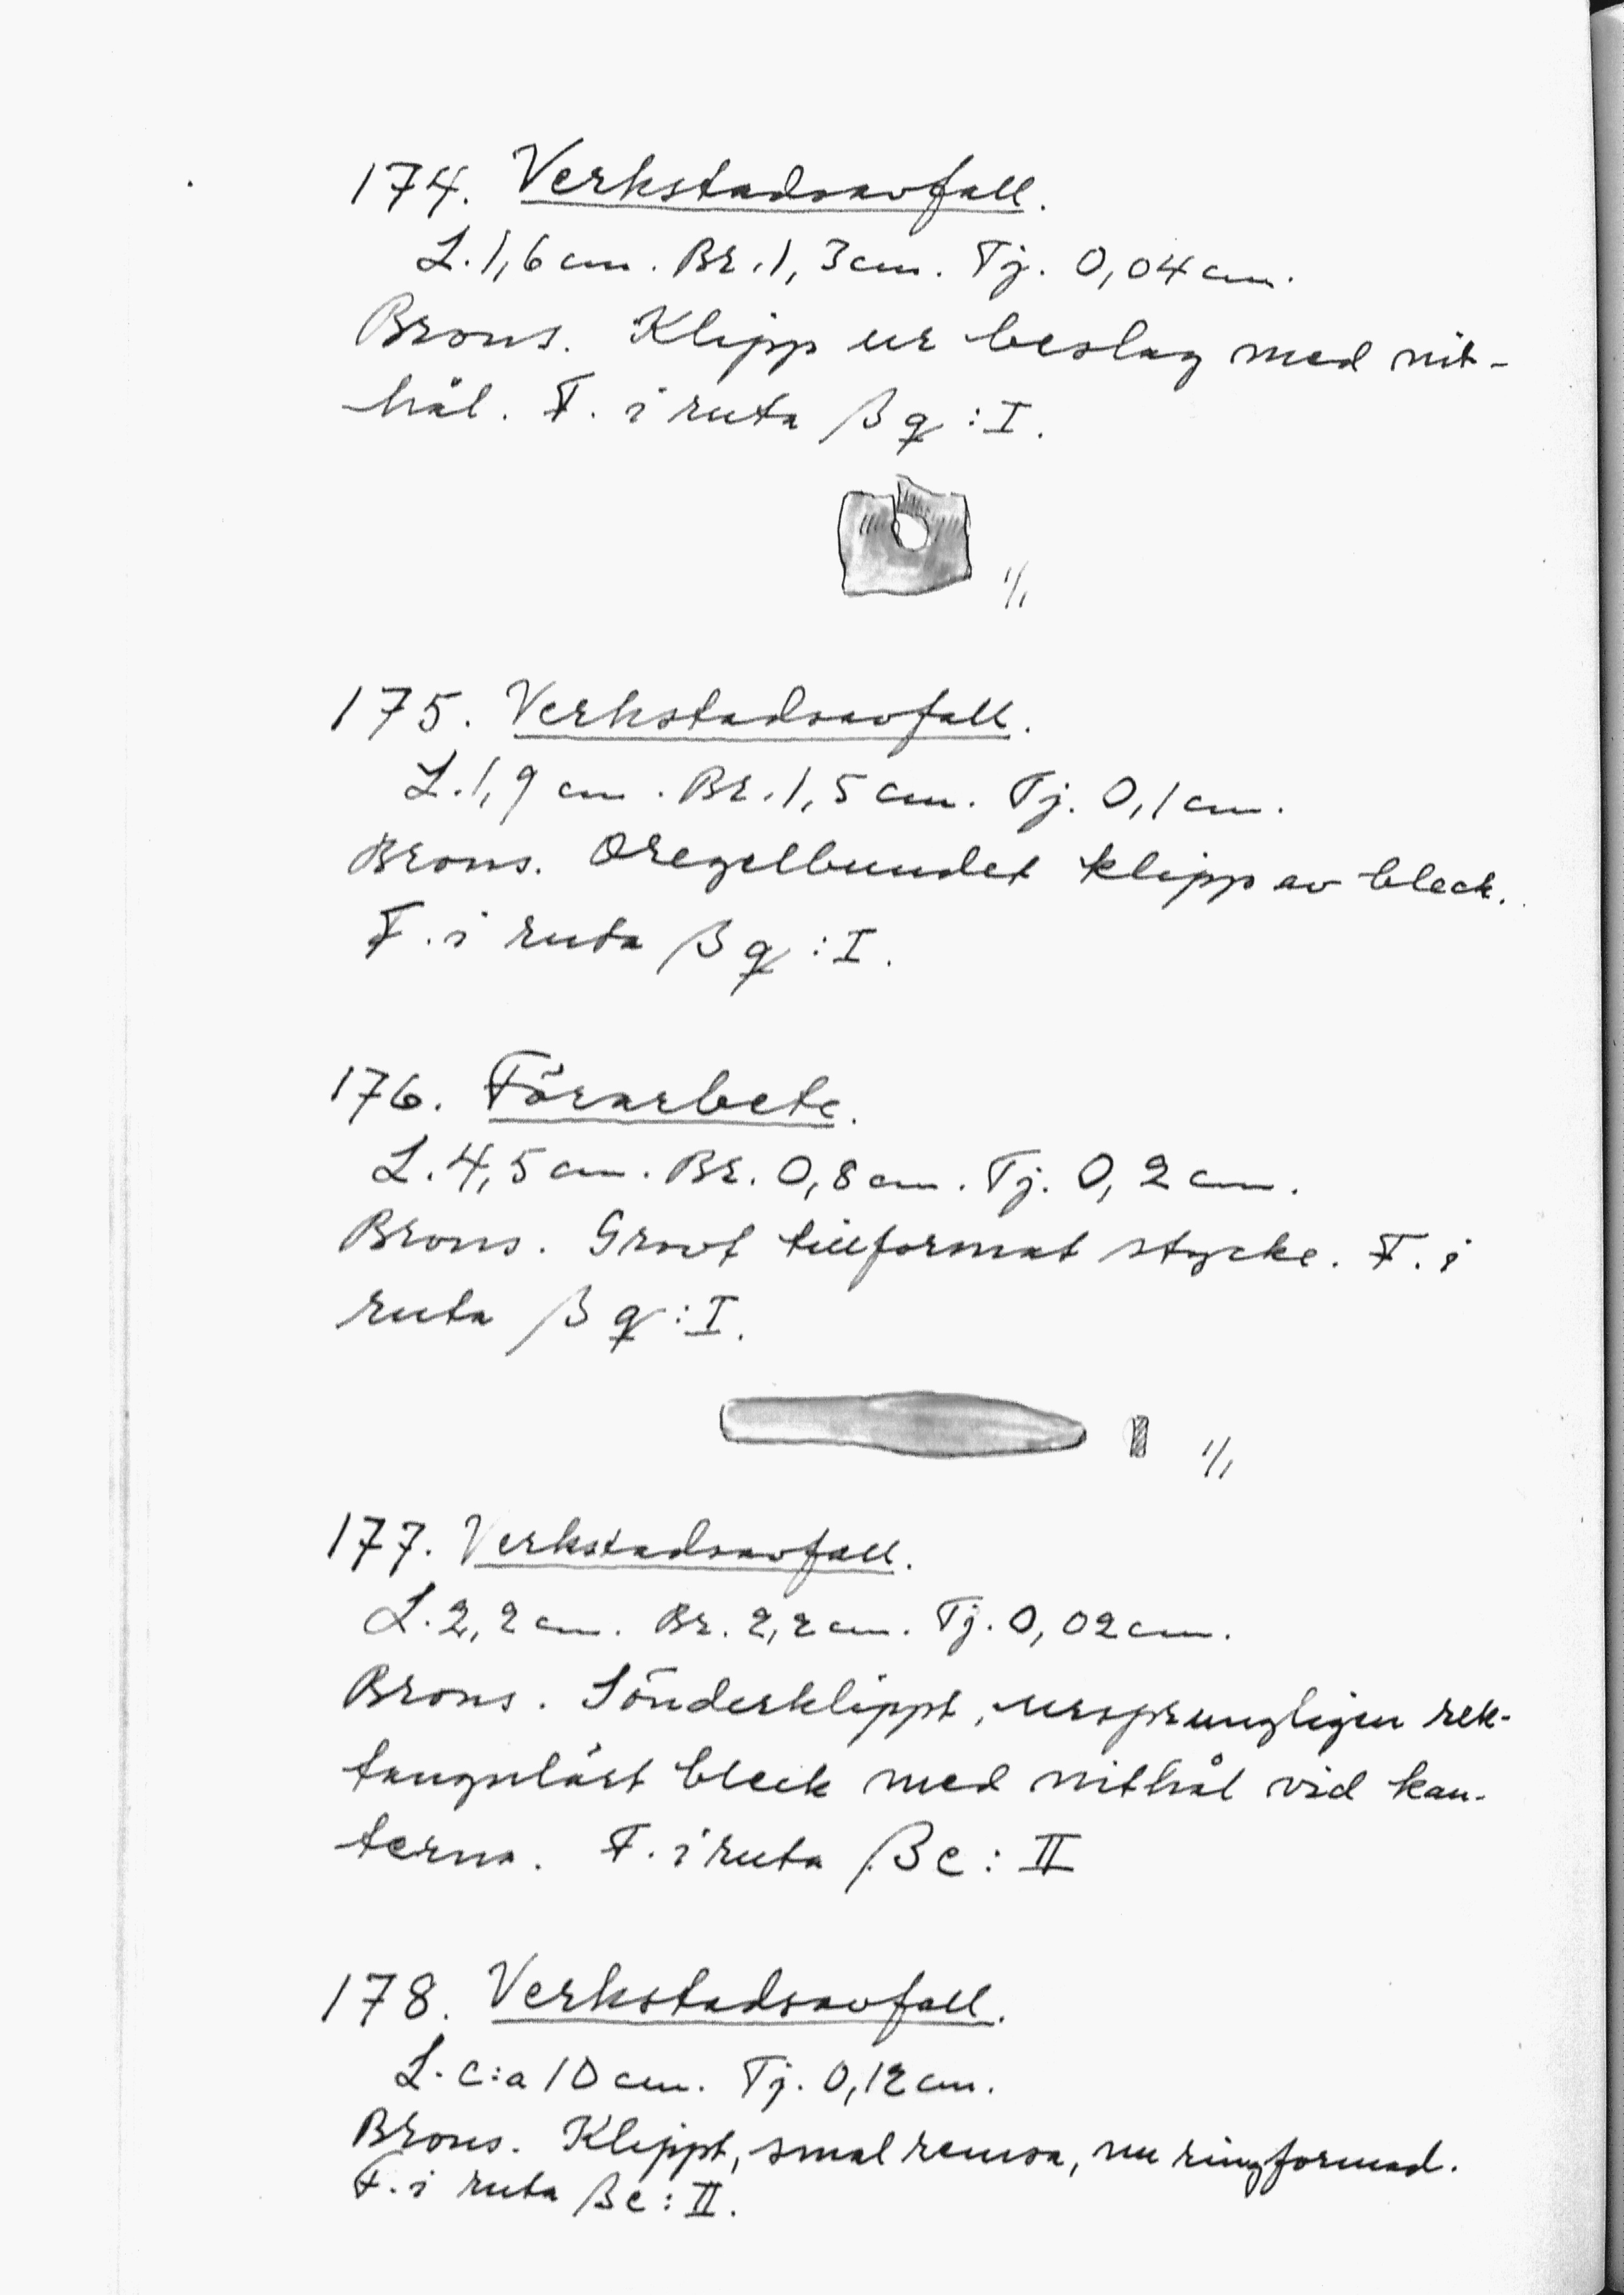 174. Verkstadsavfall.
L. 1,6 cm. Br. 1,3 cm. Tj. 0,04 cm.
Brons. Klipp ur beslag med nit-
hål. F. i ruta β q : I.
1/1
175. Verkstadsavfall.
L. 1,9 cm. Br. 1,5 cm. Tj. 0,1 cm.
Brons. Oregelbundet klipp av bleck.
F. i ruta β q : I.
176. Förarbete.
L. 4,5 cm. Br. 0,8 cm. Tj. 0,2 cm.
Brons. Grovt tillformat stycke. F. i
ruta β q : I.
1/1
177. Verkstadsavfall.
L. 2,2 cm. Br. 2,2 cm. Tj. 0,02 cm.
Brons. Sönderklippt, ursprungligen rek-
tangulärt bleck med nithål vid kan-
terna. F. i ruta β e : II
178. Verkstadsavfall.
L. c:a 10 cm. Tj. 0,12 cm.
Brons. Klippt, smal remsa, nu ringformad.
F. i ruta β e : II.